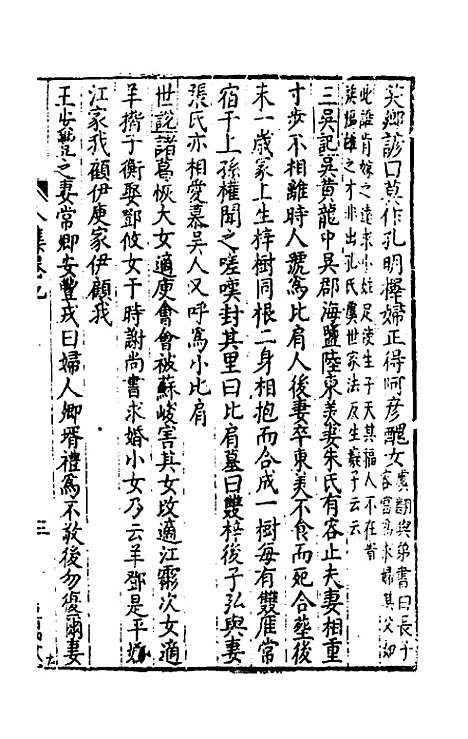 笑鄉諺曰莫作孔明擇婦正得阿彦醜女虞翻與弟書曰長子
容當為求婦其父如
此誰肯嫁之遠求小姓足使生子天其福人不在舊
族楊雄之才非出孔氏虞世家法反生癡子云云
三吳記吳黃龍中吳郡海鹽陸東美妻朱氏有容止夫妻相重
寸步不相離時人號為比肩人後妻卒東美不食而死合葬後
未一歲冢上生梓樹同根二身相抱而合成一樹每有雙雁常
宿于上孫權聞之嗟嘆封其里曰比肩墓曰雙梓後子弘與妻
張氏亦相愛慕吳人又呼為小比肩
世說諸葛恢大女適庾會會被蘇峻害其女攺適江虨次女適
羊楷子衡娶鄧攸女于時謝尚書求婚小女乃云羊鄧是平
江家我顧伊庾家伊顧我
王安豐之妻常卿安豐戎曰婦人卿壻禮為不敬後勿復爾妻
三